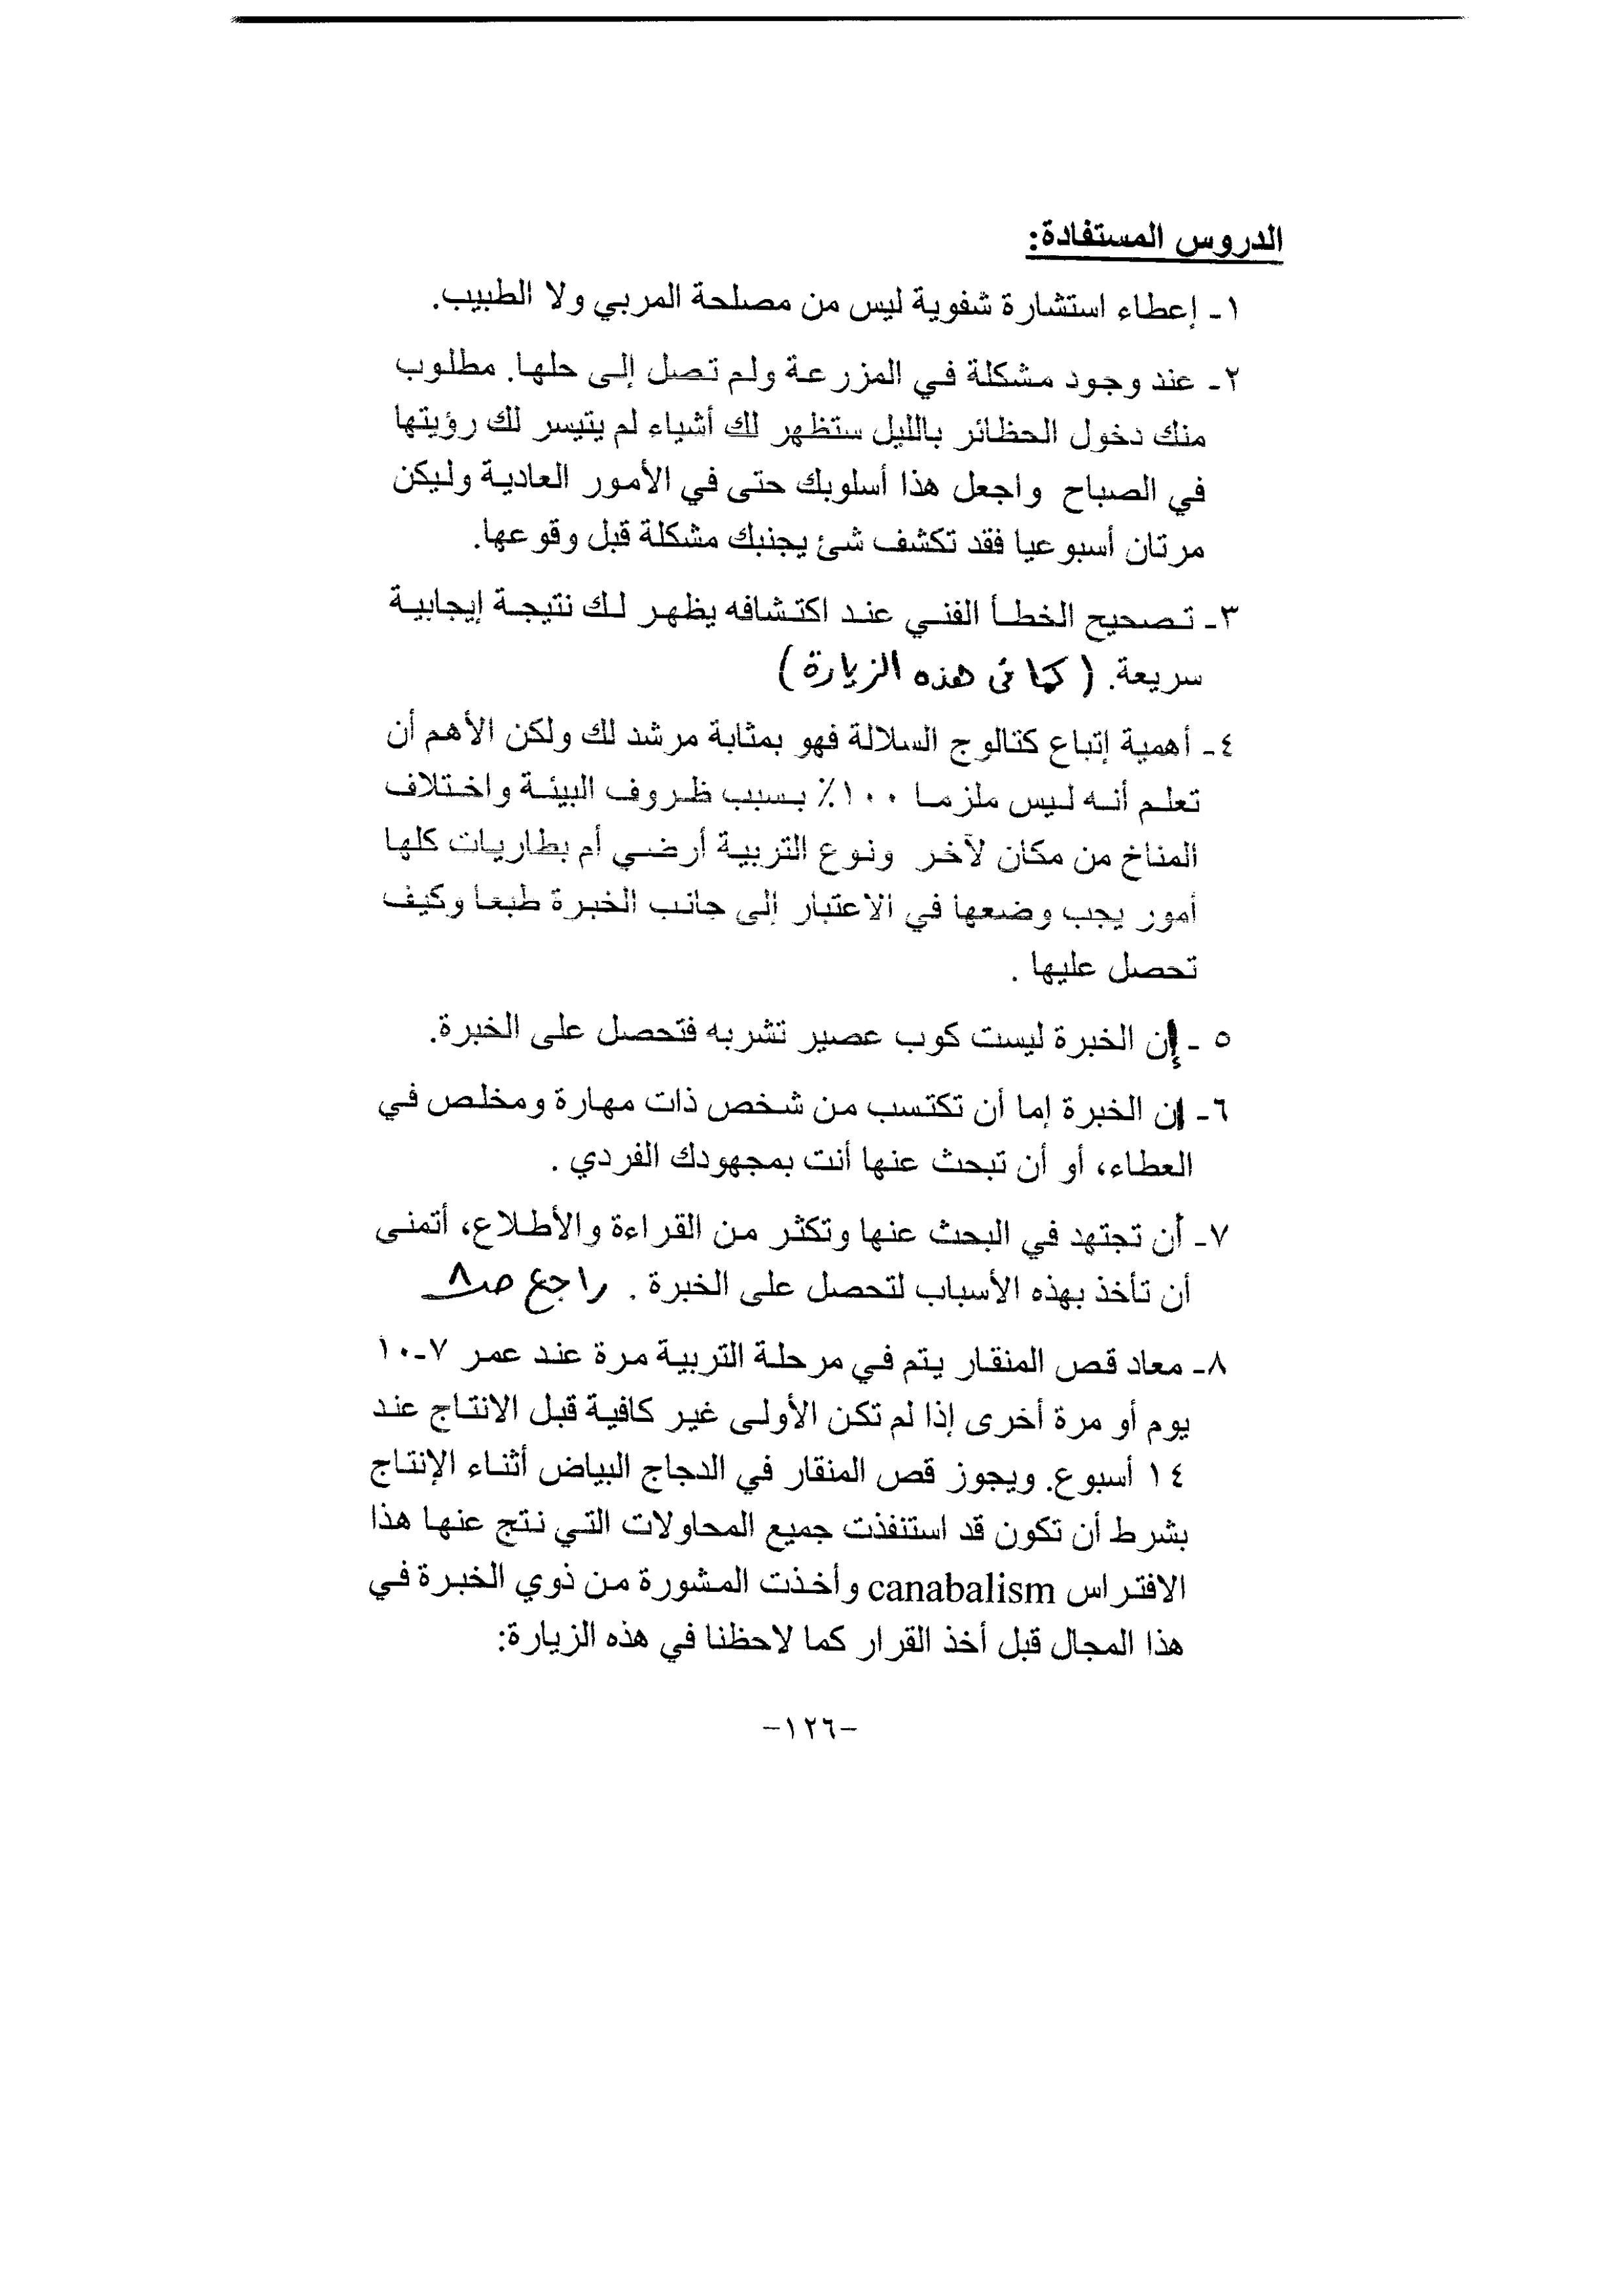 الدروس المستفادة:
١- إعطاء استشارة شفوية ليس من مصلحة المربي ولا الطبيب.
٢- عند وجود مشكلة في المزرعة ولم تصل إلى حلها. مطلوب
منك دخول الحظائر بالليل ستظهر لك أشياء لم يتيسر لك رؤيتها
في الصباح واجعل هذا أسلوبك حتى في الأمور العادية وليكن
مرتان أسبوعيا فقد تكشف شئ يجنبك مشكلة قبل وقوعها.
٣- تصحيح الخطأ الفني عند اكتشافه يظهر لك نتيجة إيجابية
سريعة. (كما فى هذه الزيارة)
٤- أهمية إتباع كتالوج السلالة فهو بمثابة مرشد لك ولكن الأهم أن
تعلم أنه ليس ملزما ١٠٠٪ بسبب ظروف البيئة واختلاف
المناخ من مكان لآخر ونوع التربية أرضي أم بطاريات كلها
أمور يجب وضعها في الاعتبار إلى جانب الخبرة طبعا وكيف
تحصل عليها .
٥ - إن الخبرة ليست كوب عصير تشربه فتحصل على الخبرة.
٦- إن الخبرة إما أن تكتسب من شخص ذات مهارة ومخلص في
العطاء، أو أن تبحث عنها أنت بمجهودك الفردي .
٧- أن تجتهد في البحث عنها وتكثر من القراءة والأطلاع، أتمنى
أن تأخذ بهذه الأسباب لتحصل على الخبرة . راجع صـ٨
٨- معاد قص المنقار يتم في مرحلة التربية مرة عند عمر ٧-١٠
يوم أو مرة أخرى إذا لم تكن الأولى غير كافية قبل الانتاج عند
١٤ أسبوع. ويجوز قص المنقار في الدجاج البياض أثناء الإنتاج
بشرط أن تكون قد استنفذت جميع المحاولات التي نتج عنها هذا
الافتراس canabalism وأخذت المشورة من ذوي الخبرة في
هذا المجال قبل أخذ القرار كما لاحظنا في هذه الزيارة:
-١٢٦-